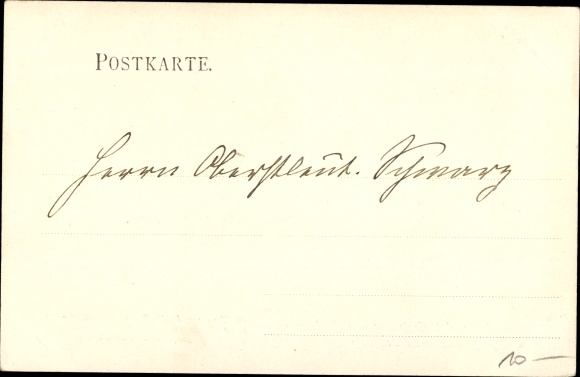 POSTKARTE.
Herrn Oberstleut. Schwarz
10 —